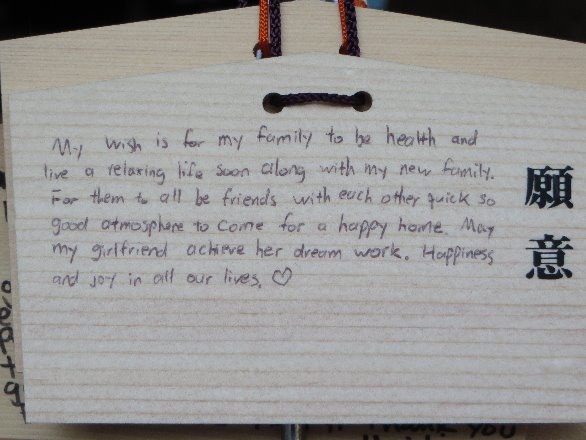 My wish is for my family to be health and
live a relaxing life soon along with my new family.
For them to all be friends with each other quick so
good atmosphere to come for a happy home. May
my girlfriend achieve her dream work. Happiness
and joy in all our lives. ♡
願意
Thank you